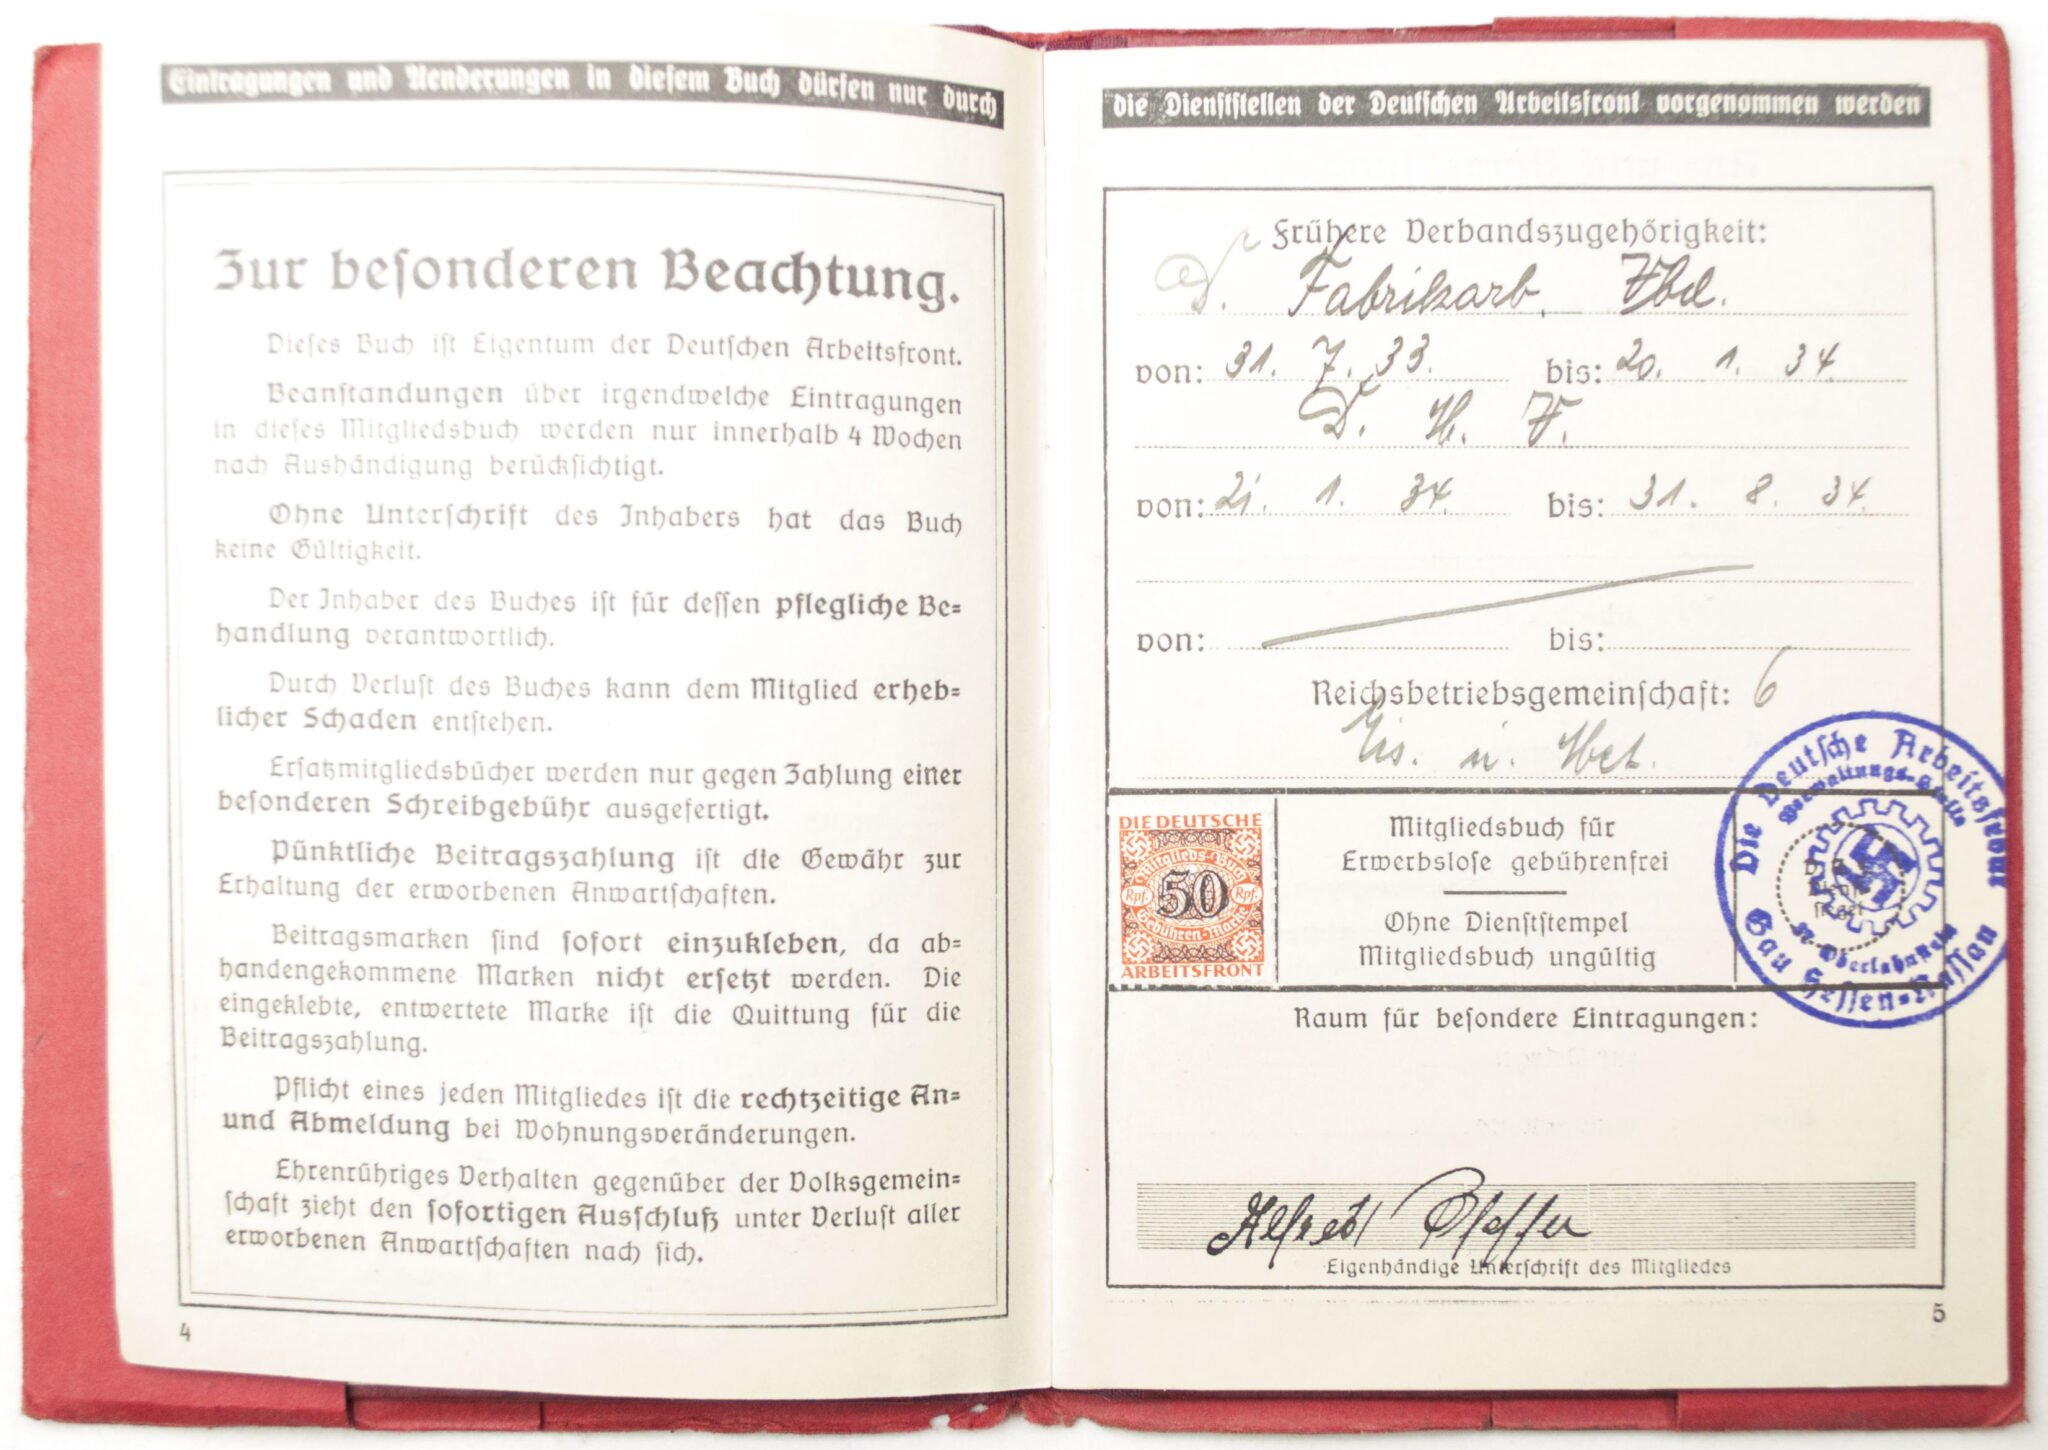 Eintragungen und Aenderungen in diesem Buch dürfen nur durch
Zur besonderen Beachtung.
Dieses Buch ist Eigentum der Deutschen Arbeitsfront.
Beanstandungen über irgendwelche Eintragungen
in dieses Mitgliedsbuch werden nur innerhalb 4 Wochen
nach Aushändigung berücksichtigt.
Ohne Unterschrift des Inhabers hat das Buch
keine Gültigkeit.
Der Inhaber des Buches ist für dessen pflegliche Be-
handlung verantwortlich.
Durch Verlust des Buches kann dem Mitglied erheb-
licher Schaden entstehen.
Ersatzmitgliedsbücher werden nur gegen Zahlung einer
besonderen Schreibgebühr ausgefertigt.
Pünktliche Beitragszahlung ist die Gewähr zur
Erhaltung der erworbenen Anwartschaften.
Beitragsmarken sind sofort einzukleben, da ab-
handengekommene Marken nicht ersetzt werden. Die
eingeklebte, entwertete Marke ist die Quittung für die
Beitragszahlung.
Pflicht eines jeden Mitgliedes ist die rechtzeitige An-
und Abmeldung bei Wohnungsveränderungen.
Ehrenrühriges Verhalten gegenüber der Volksgemein-
schaft zieht den sofortigen Ausschluß unter Verlust aller
erworbenen Anwartschaften nach sich.
4
die Dienststellen der Deutschen Arbeitsfront vorgenommen werden
Frühere Verbandszugehörigkeit:
D. Fabrikarb. Vbd.
von: 31. 7. 33. bis: 20. 1. 34
D. M. V.
von: 21. 1. 34. bis: 31. 8. 34.
von: bis:
Reichsbetriebsgemeinschaft: 6
Eis. u. Met.
DIE DEUTSCHE
Mitglieds-Buch
Rpf. 50 Rpf.
Gebühren-Marke
ARBEITSFRONT
Mitgliedsbuch für
Erwerbslose gebührenfrei
Ohne Dienststempel
Mitgliedsbuch ungültig
Die Deutsche Arbeitsfront
Verwaltungs-Stelle
Gau Hessen-Nassau
Raum für besondere Eintragungen:
Alfred Pfeffer
Eigenhändige Unterschrift des Mitgliedes
5